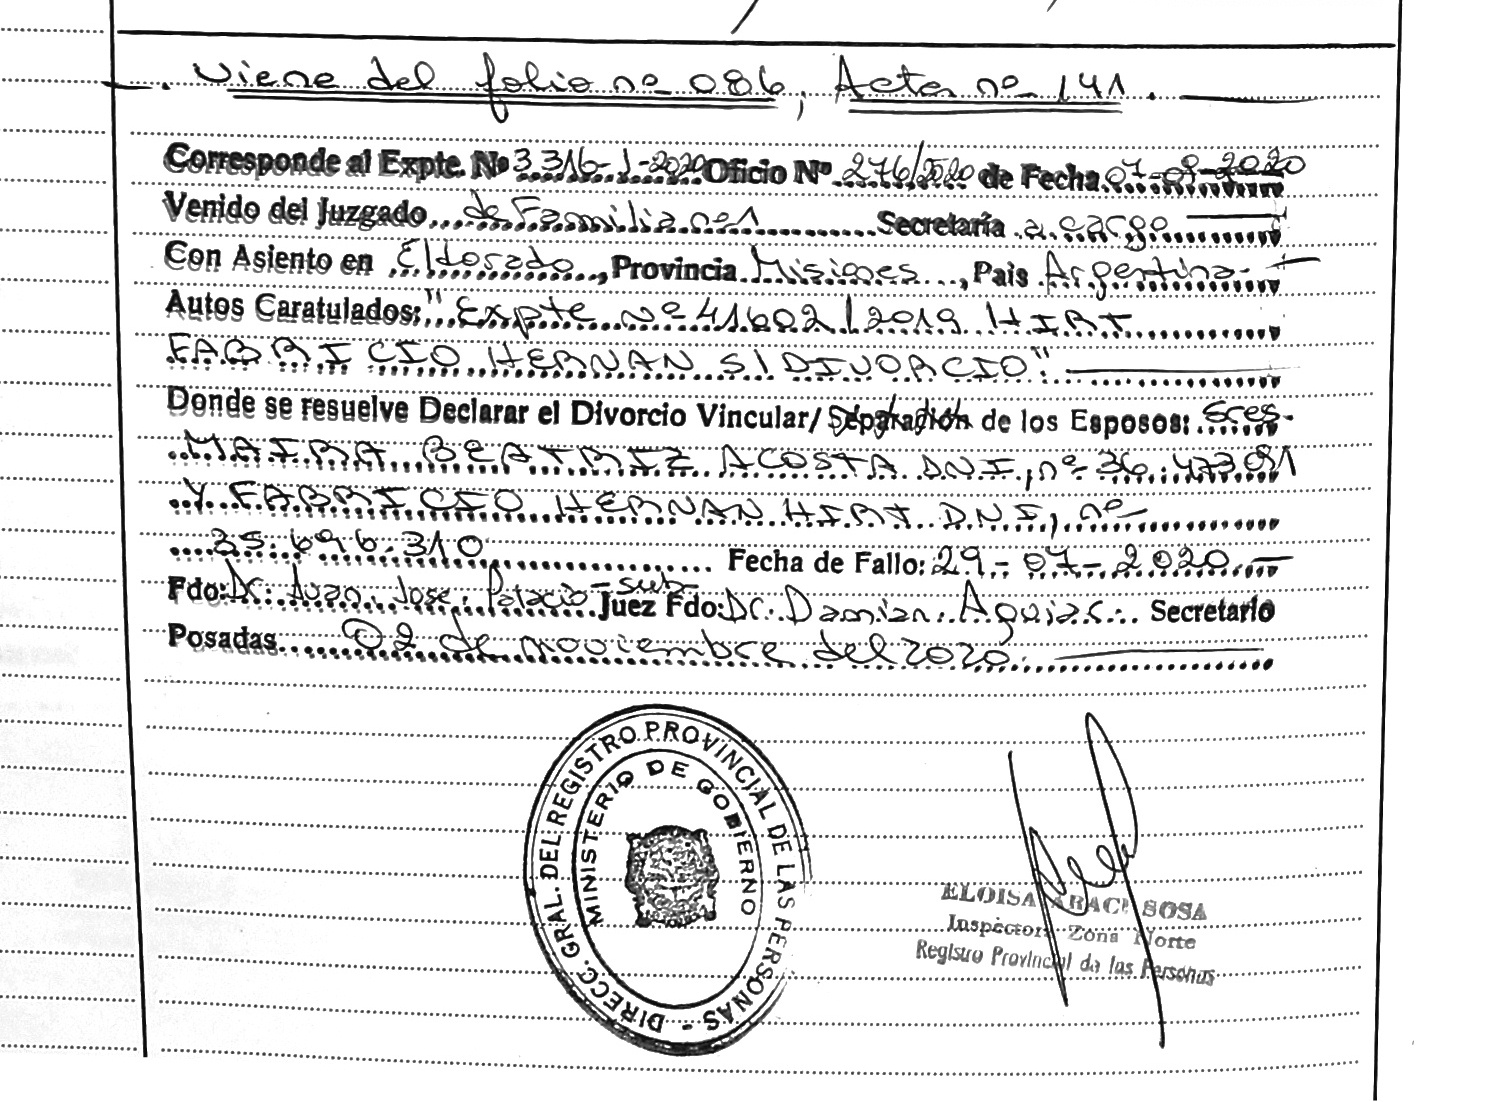 . Viene del folio nº 086, Acta nº 141.
Corresponde al Expte. Nº 3316-J-2020 Oficio Nº 276/2020 de Fecha 07-09-2020
Venido del Juzgado de Familia nº1 Secretaría a cargo
Con Asiento en Eldorado, Provincia Misiones, País Argentina-
Autos Caratulados: "Expte Nº 41602/2019 HIRT
FABRICIO HERNAN S/DIVORCIO"
Donde se resuelve Declarar el Divorcio Vincular/ Separación de los Esposos: Sres.
MAIRA BEATRIZ ACOSTA DNI, nº 36.473.091
Y FABRICIO HERNAN HIRT DNI, nº
35.696.310 Fecha de Fallo: 29-07-2020.-
Fdo: Dr. Juan José Palacio -sub- Juez Fdo: Dr. Damian Aguiar. Secretario
Posadas 02 de noviembre del 2020.
DIRECC. GRAL. DEL REGISTRO PROVINCIAL DE LAS PERSONAS -
MINISTERIO DE GOBIERNO
ELOISA ARACI SOSA
Inspectora Zona Norte
Registro Provincial de las Personas